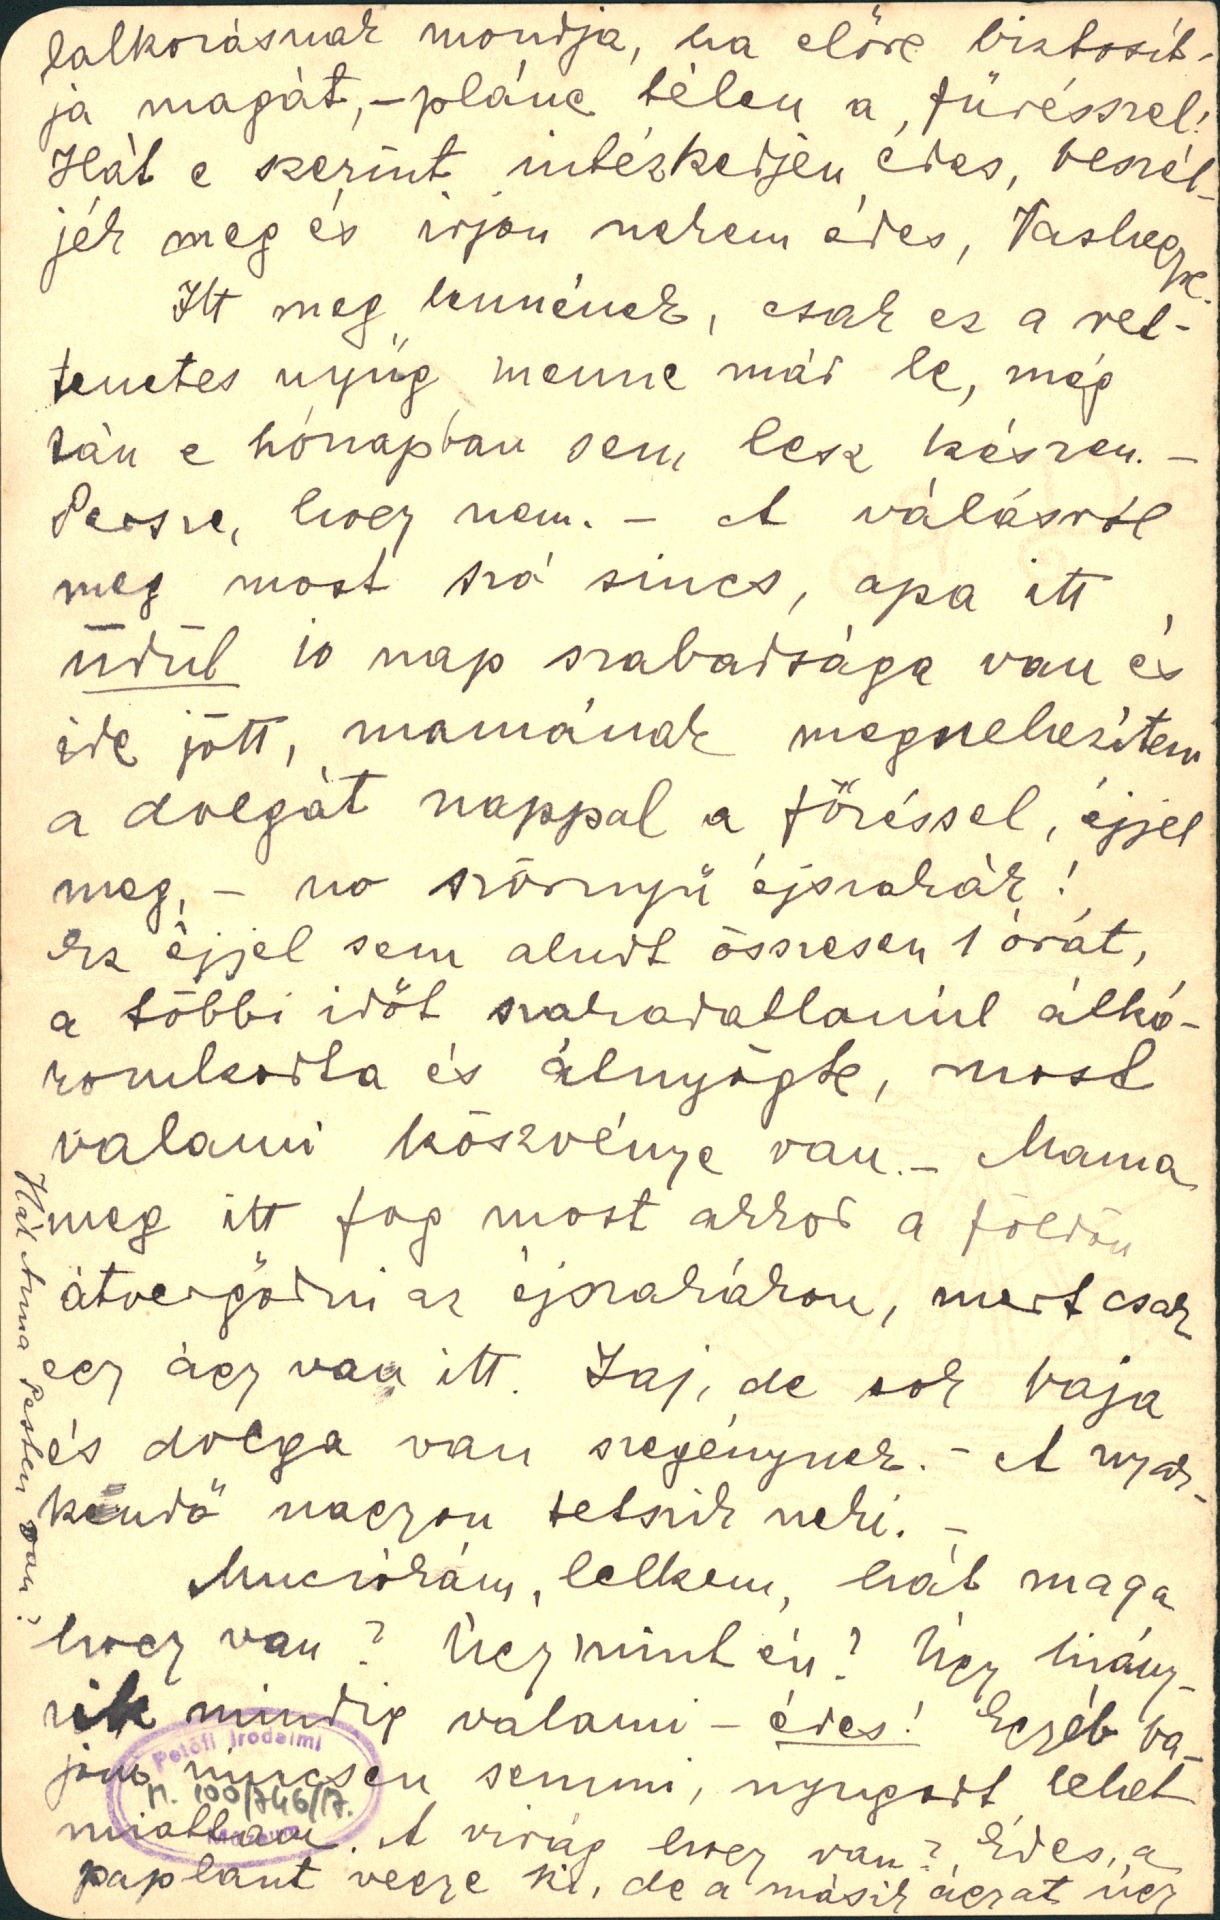 lalkozásnak mondja, ha előre biztosít-
ja magát, – pláne télen a fűrésszel!
Hát e szerint intézkedjen édes, beszél-
jék meg és irjon nekem édes, Vashegyre.
Itt meg lennének, csak ez a ret-
tenetes nyűg menne már le, még
tán e hónapban sem lesz készen. –
Persze, hogy nem. – A válásról
meg most szó sincs, apa itt
üdül 10 nap szabadsága van és
ide jött, mamának megnehezíteni
a dolgát nappal a főzéssel, éjjel
meg, – no szörnyű éjszakák!
Az éjjel sem aludt összesen 1 órát,
a többi időt szakadatlanúl átká-
romkodta és átnyögte, most
valami köszvénye van. – Mama
meg itt fog most akkor a földön
átvergődni az éjszakákon, mert csak
egy ágy van itt. Jaj, de sok baja
és dolga van szegénynek. – A nyak-
kendő nagyon tetszik neki. –
Muciókám, lelkem, hát maga
hogy van? Úgy mint én? Úgy hiány-
zik mindig valami – édes! Egyéb ba-
jom nincsen semmi, nyugodt lehet
miattam. A virág hogy van? Édes, a
paplant vegye ki, de a másik ágyat úgy
Hát Anna Pesten van?
Petőfi Irodalmi
Múzeum
N. 100/746/17.